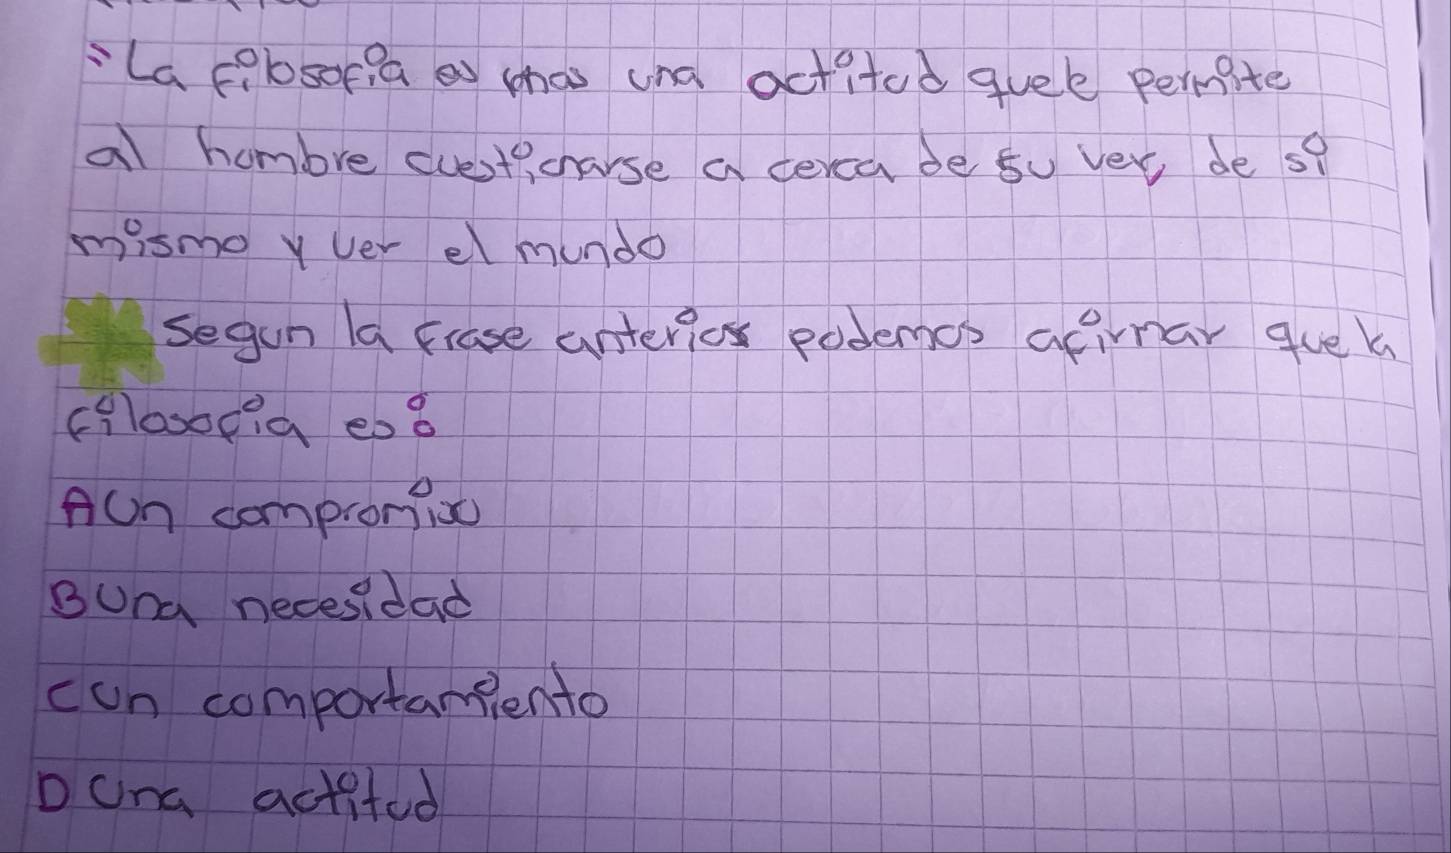 "La filosofia es mas una actitud quele permite
al hombre cuestionarse a cerca de su ver, de si
mismo y ver el mundo
segun la frase anterior podemos afirmar que la
filosofia es:
A Un compromiso
B Una necesidad
C Un comportamiento
D Una actitud